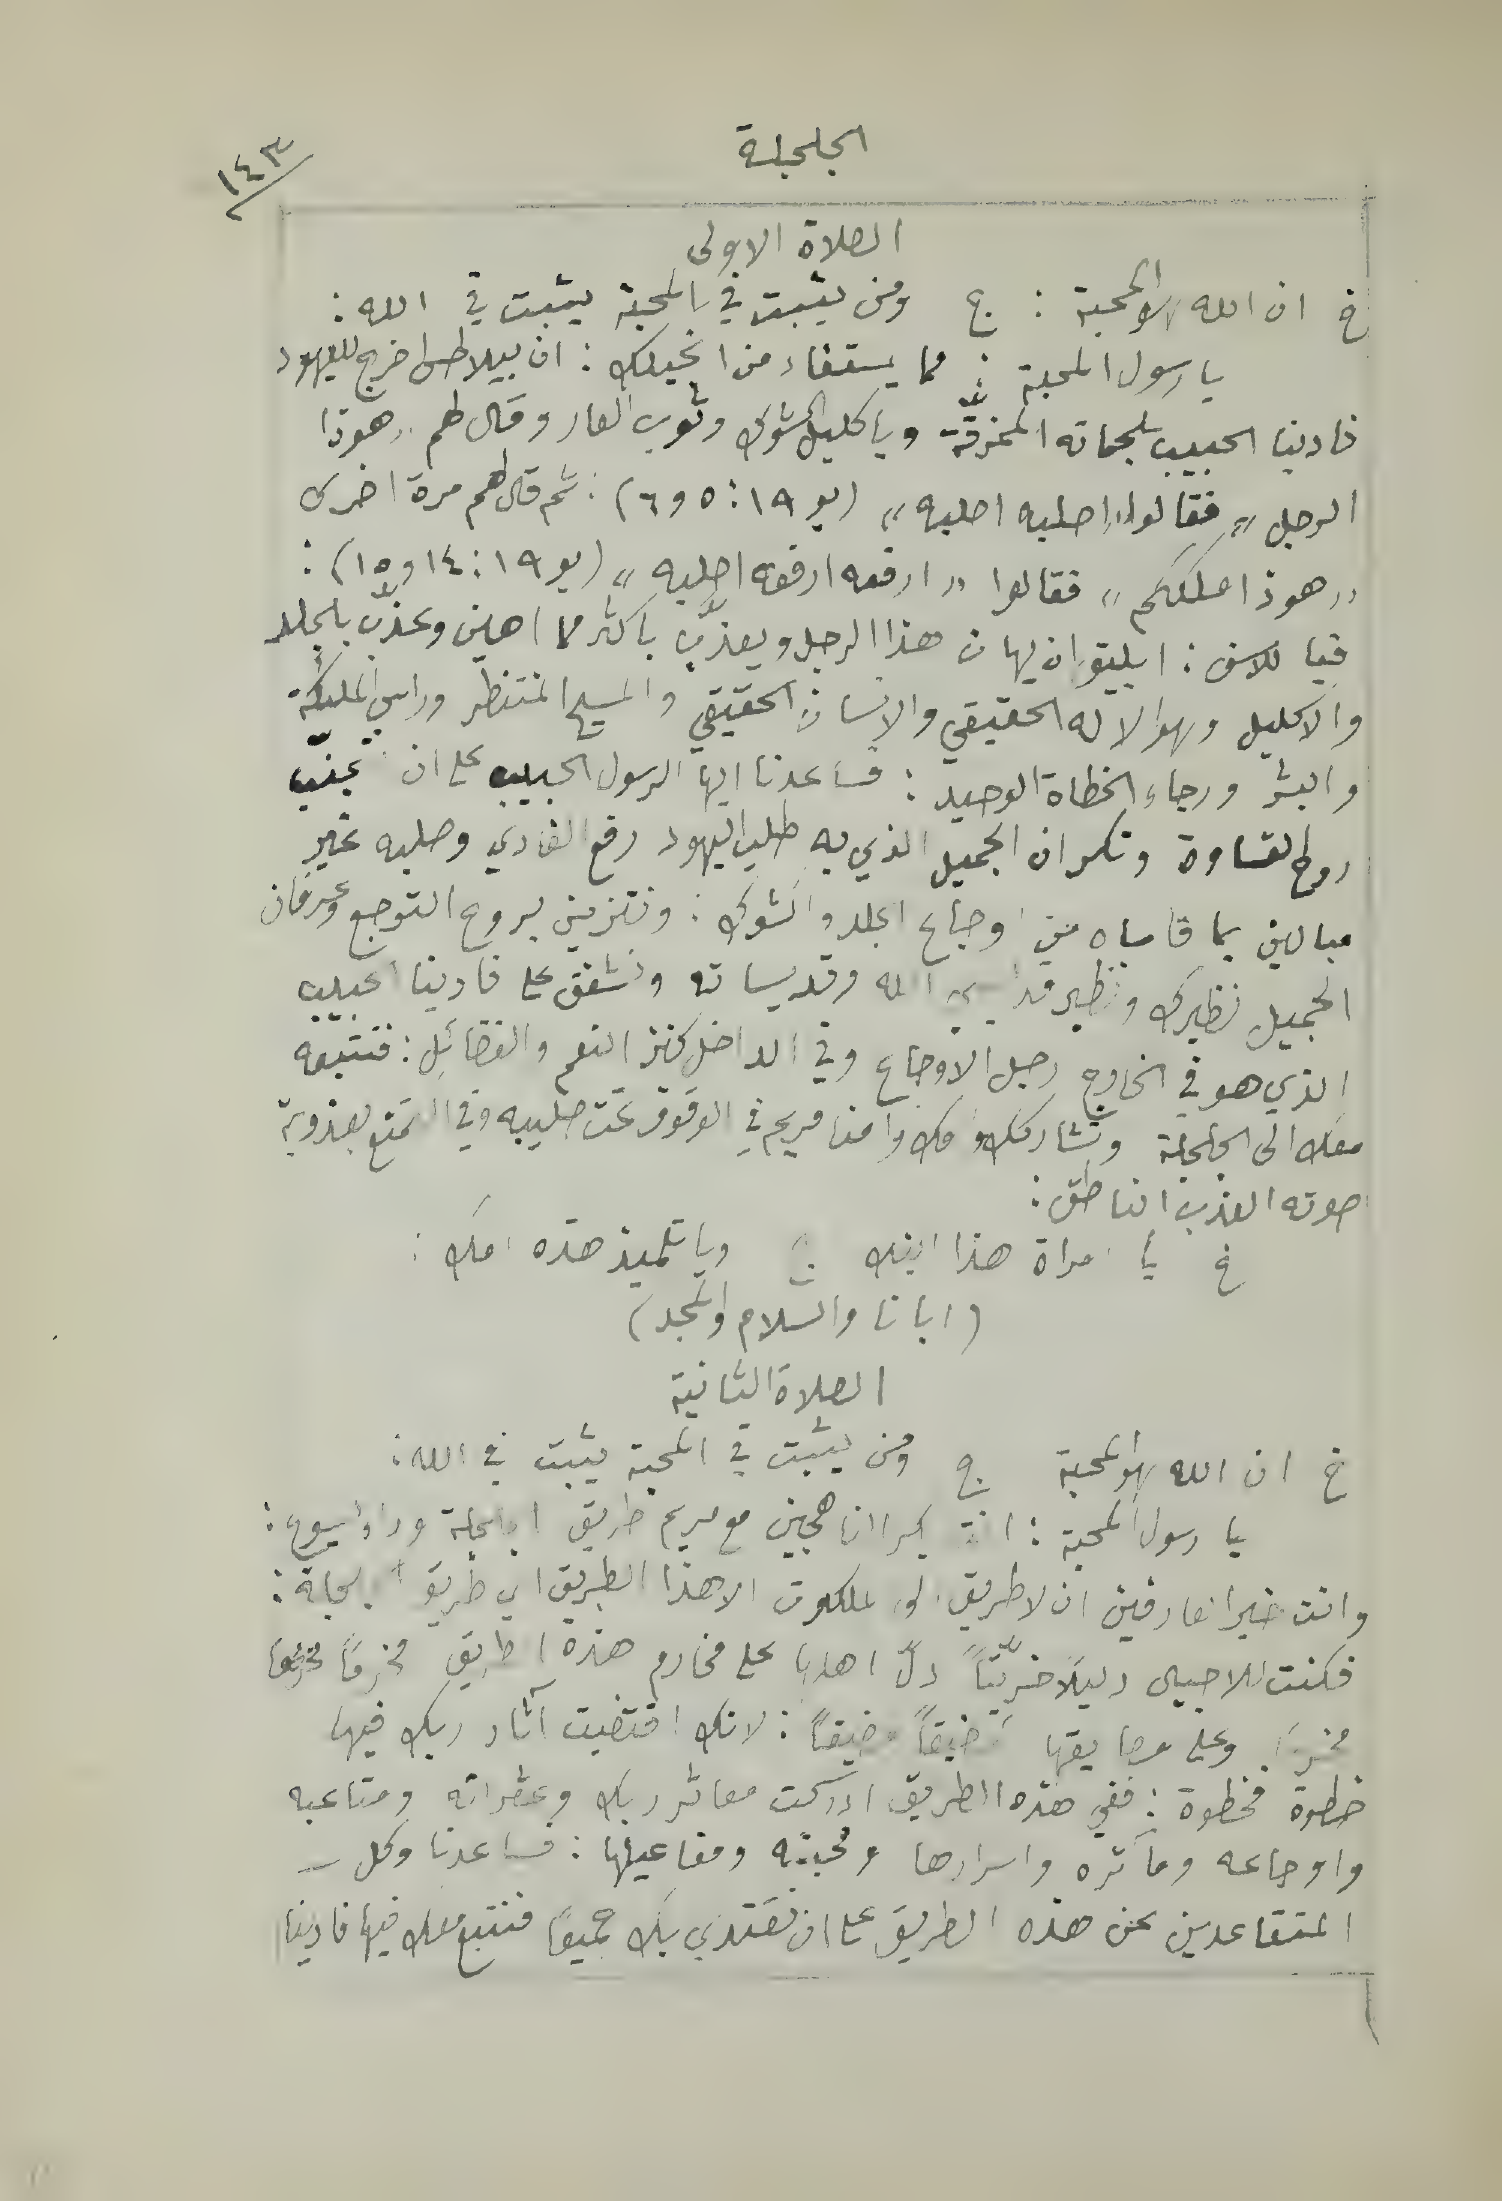 الجلجلة
١٤٣
الصلاة الاولى
خ ان الله هو المحبة : ج ومن يثبت في المحبة يثبت في الله :
يا رسول المحبة : مما يستفاد من انجيلك : ان بيلاطس اخرج لليهود
فادينا الحبيب بلحمانه الممزقة وباكليل الشوك وثوب العار وقال لهم " هوذا
الرجل " فقالوا " اصلبه اصلبه " (يو ١٩ : ٥ و ٦) : ثم قال لهم مرة اخرى
" هوذا ملككم " فقالوا " ارفعه ارفعه اصلبه " (يو ١٩ : ١٤ و ١٥) :
فيا للاسف : ايليق ان يهان هذا الرجل ويعذّب باكثر مما اهين وعذّب بالجلد
والاكليل وهو الاله الحقيقي والانسان الحقيقي والمسيح المنتظر وراس الملئكة
والبشر ورجاء الخطاة الوحيد : فساعدنا ايها الرسول الحبيب على ان نجنّب
روح القساوة ونكران الجميل الذي به طلب اليهود رفع الفادي وصلبه غير
مبالين بما قاساه من اوجاع الجلد والشوك : ونتزين بروح التوجع وعرفان
الجميل نظيرك ونظير قديسي الله وقديساته ونشفق على فادينا الحبيب
الذي هو في الخارج رجل الاوجاع وفي الداخل كنز النعم والفضائل : فنتبعه
معك الى الجلجلة ونشاركك وامك وامنا مريم في الوقوف تحت صليبه وفي التمتع بعذوبة
صوته العذب الناطق :
خ يا امراة هذا ابنك ويا تلميذ هذه امك :
(ابانا والسلام والمجد)
الصلاة الثانية
خ ان الله هو المحبة ج ومن يثبت في المحبة يثبت في الله :
يا رسول المحبة : انت بكر الناهجين مع مريم طريق الجلجلة وراء يسوع :
وانت خير العارفين ان لا طريق الى الملكوت الا هذا الطريق اي طريق الجلجلة :
فكنت للاجيال دليلًا خرّيتًا دلّ اهلها على مخارم هذه الطريق مخرمًا فمخرمًا
وعلى مضايقها مضيقًا مضيقًا : لانك اقتفيت آثار ربك فيها
خطوة فخطوة : ففي هذه الطريق ادركت معاثر ربك وعثراته ومتاعبه
واوجاعه ومآثره واسرارها ومحبته ومفاعيلها : فساعدنا وكل
المتقاعدين عن هذه الطريق على ان نقتدي بك جميعًا فنتبع معك فيها فادينا